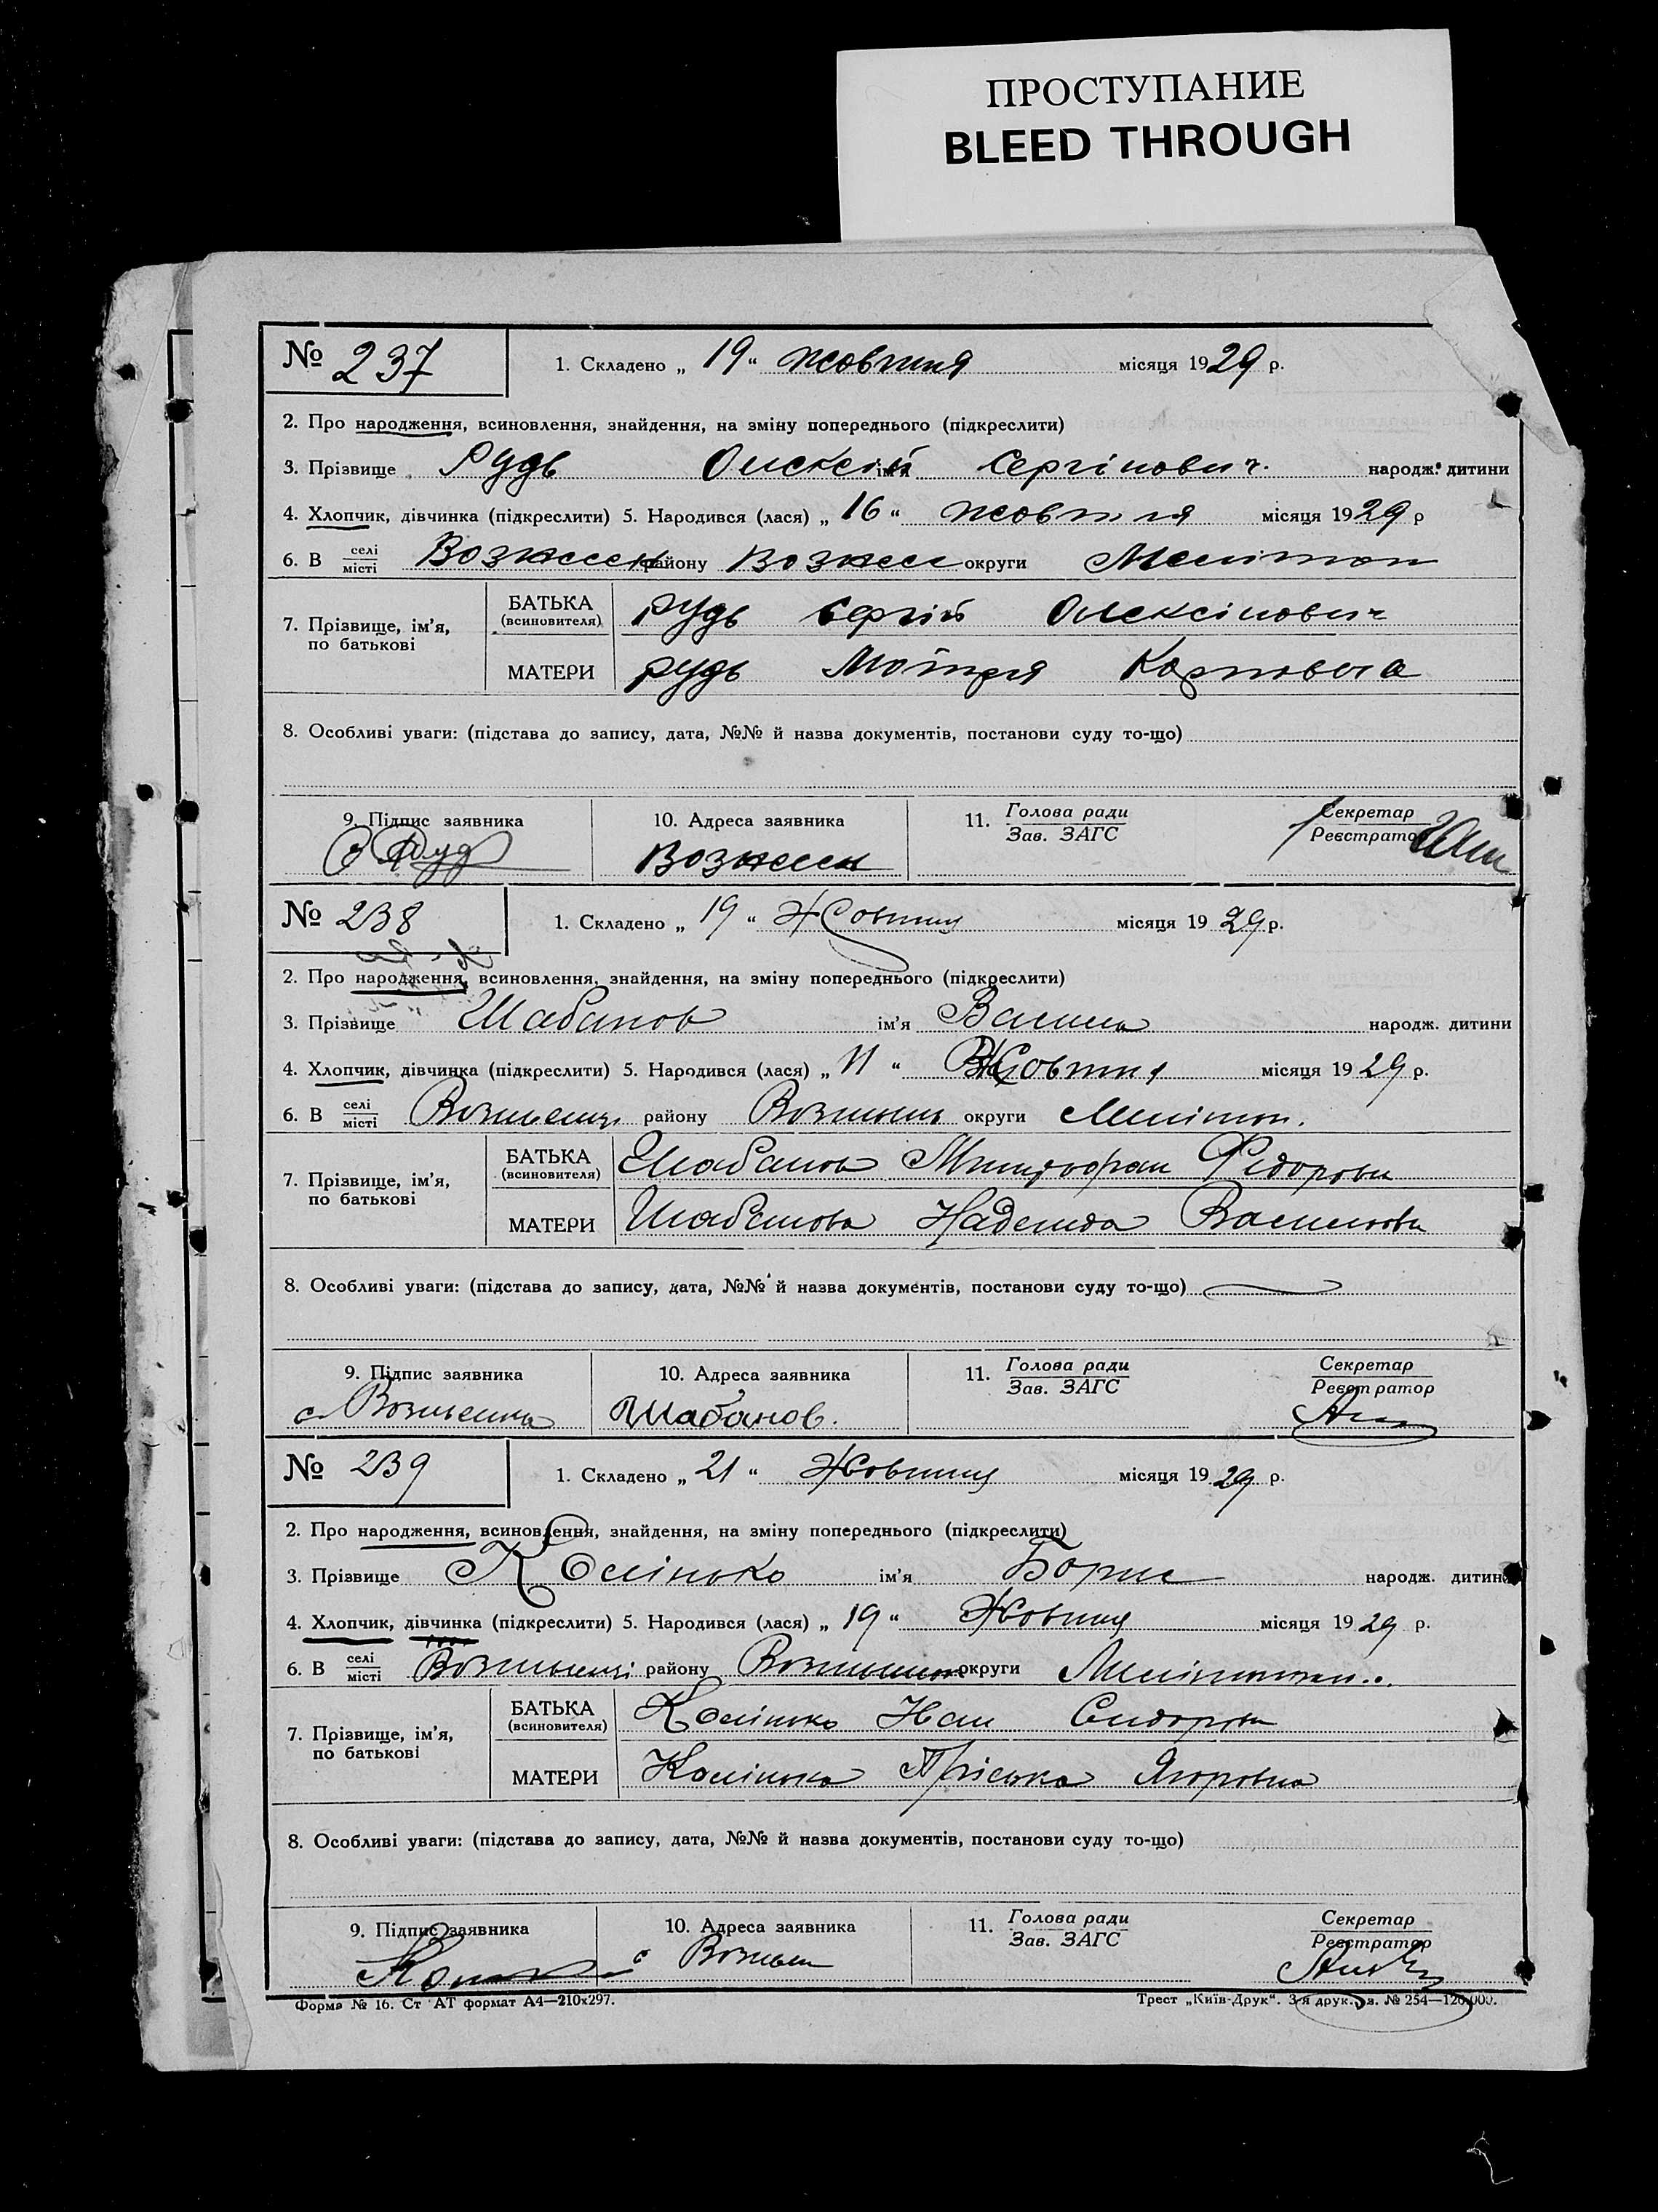 ПРОСТУПАНИЕ
BLEED THROUGH
№ 237 1. Складено „ 19 “ жовтня місяця 1929 р.
2. Про народження, всиновлення, знайдення, на зміну попереднього (підкреслити)
3. Прізвище Рудь Олексій ім'я Сергійович народж. дитини
4. Хлопчик, дівчинка (підкреслити) 5. Народився (лася) „ 16 “ жовтня місяця 1929 р
6. В селі/місті Вознесен району Вознесе округи Мелітоп
7. Прізвище, ім'я, по батькові
БАТЬКА (всиновителя) Рудь Сергій Олексійович
МАТЕРИ Рудь Мотря Карповна
8. Особливі уваги: (підстава до запису, дата, №№ й назва документів, постанови суду то-що)
9. Підпис заявника 10. Адреса заявника 11. Голова ради/Зав. ЗАГС Секретар/Реєстратор
Вознесен
№ 238 1. Складено „ 19 “ Жовтня місяця 1929 р.
2. Про народження, всиновлення, знайдення, на зміну попереднього (підкреслити)
3. Прізвище Шабанов ім'я народж. дитини
4. Хлопчик, дівчинка (підкреслити) 5. Народився (лася) „ 11 “ Жовтня місяця 1929 р.
6. В селі/місті району округи Мелітоп.
7. Прізвище, ім'я, по батькові
БАТЬКА (всиновителя) Шабанов Федоров
МАТЕРИ Шабанова Надежда
8. Особливі уваги: (підстава до запису, дата, №№ й назва документів, постанови суду то-що)
9. Підпис заявника 10. Адреса заявника 11. Голова ради/Зав. ЗАГС Секретар/Реєстратор
Шабанов.
№ 239 1. Складено „ 21 “ Жовтня місяця 1929 р.
2. Про народження, всиновлення, знайдення, на зміну попереднього (підкреслити)
3. Прізвище Колінько ім'я Борис народж. дитини
4. Хлопчик, дівчинка (підкреслити) 5. Народився (лася) „ 19 “ Жовтня місяця 1929 р.
6. В селі/місті району округи
7. Прізвище, ім'я, по батькові
БАТЬКА (всиновителя) Колінько Іван Сидоров
МАТЕРИ Колінька Пріська Ягоровна
8. Особливі уваги: (підстава до запису, дата, №№ й назва документів, постанови суду то-що)
9. Підпис заявника 10. Адреса заявника 11. Голова ради/Зав. ЗАГС Секретар/Реєстратор
Форма № 16. Ст АТ формат А4—210х297. Трест „Київ-Друк“. 3-я друк. з. № 254—120.000.